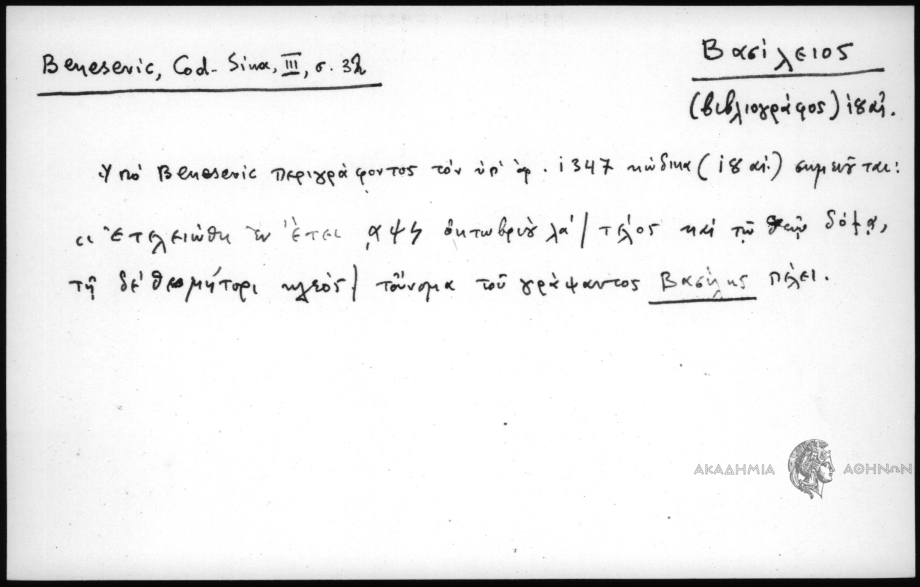 Benesevic, Cod. Sina, III, σ. 32
Βασίλειος
(βιβλιογράφος) ιη αἰ.
Ὑπό Benesevic περιγράφοντος τόν ὑπ' ἀρ. 1347 κώδικα (ιη αἰ.) σημειοῦται:
"Ἐτελειώθη ἐν ἔτει ͵αψϟ ὀκτωβρίου λα / τέλος καί τῷ θεῷ δόξα,
τῇ δέ θεομήτορι κλέος / τοὔνομα τοῦ γράψαντος Βασίλης πέλει.
ΑΚΑΔΗΜΙΑ ΑΘΗΝΩΝ